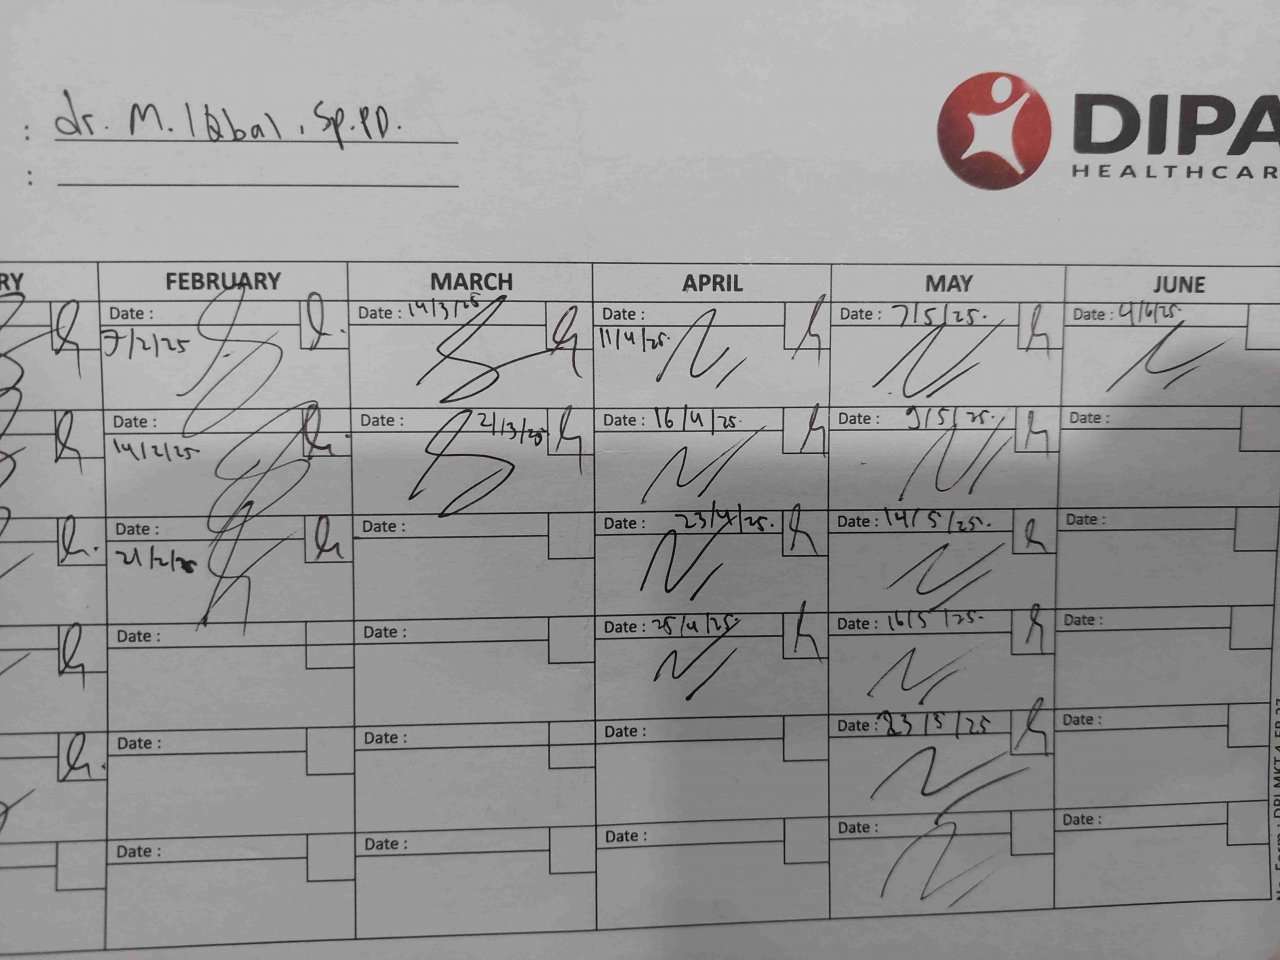 : dr. M. Iqbal, Sp.PD.
:
DIPA
HEALTHCAR
RY FEBRUARY MARCH APRIL MAY JUNE
Date : 7/2/25 Date : 14/3/25 Date : 11/4/25. Date : 7/5/25. Date : 4/6/25.
Date : 14/2/25 Date : 21/3/25 Date : 16/4/25. Date : 9/5/25. Date :
Date : 21/2/25 Date : Date : 23/4/25. Date : 14/5/25. Date :
Date : Date : Date : 25/4/25. Date : 16/5/25. Date :
Date : Date : Date : Date : 23/5/25 Date :
Date : Date : Date : Date : Date :